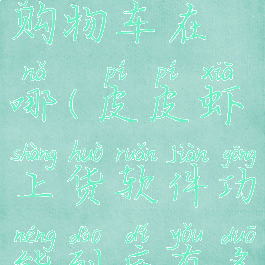 购物车在
nǎ pí pí xiā
哪(皮皮虾
shàng huò ruǎn jiàn gōng
上货软件功
néng dào dǐ yǒu duō
能到底有多